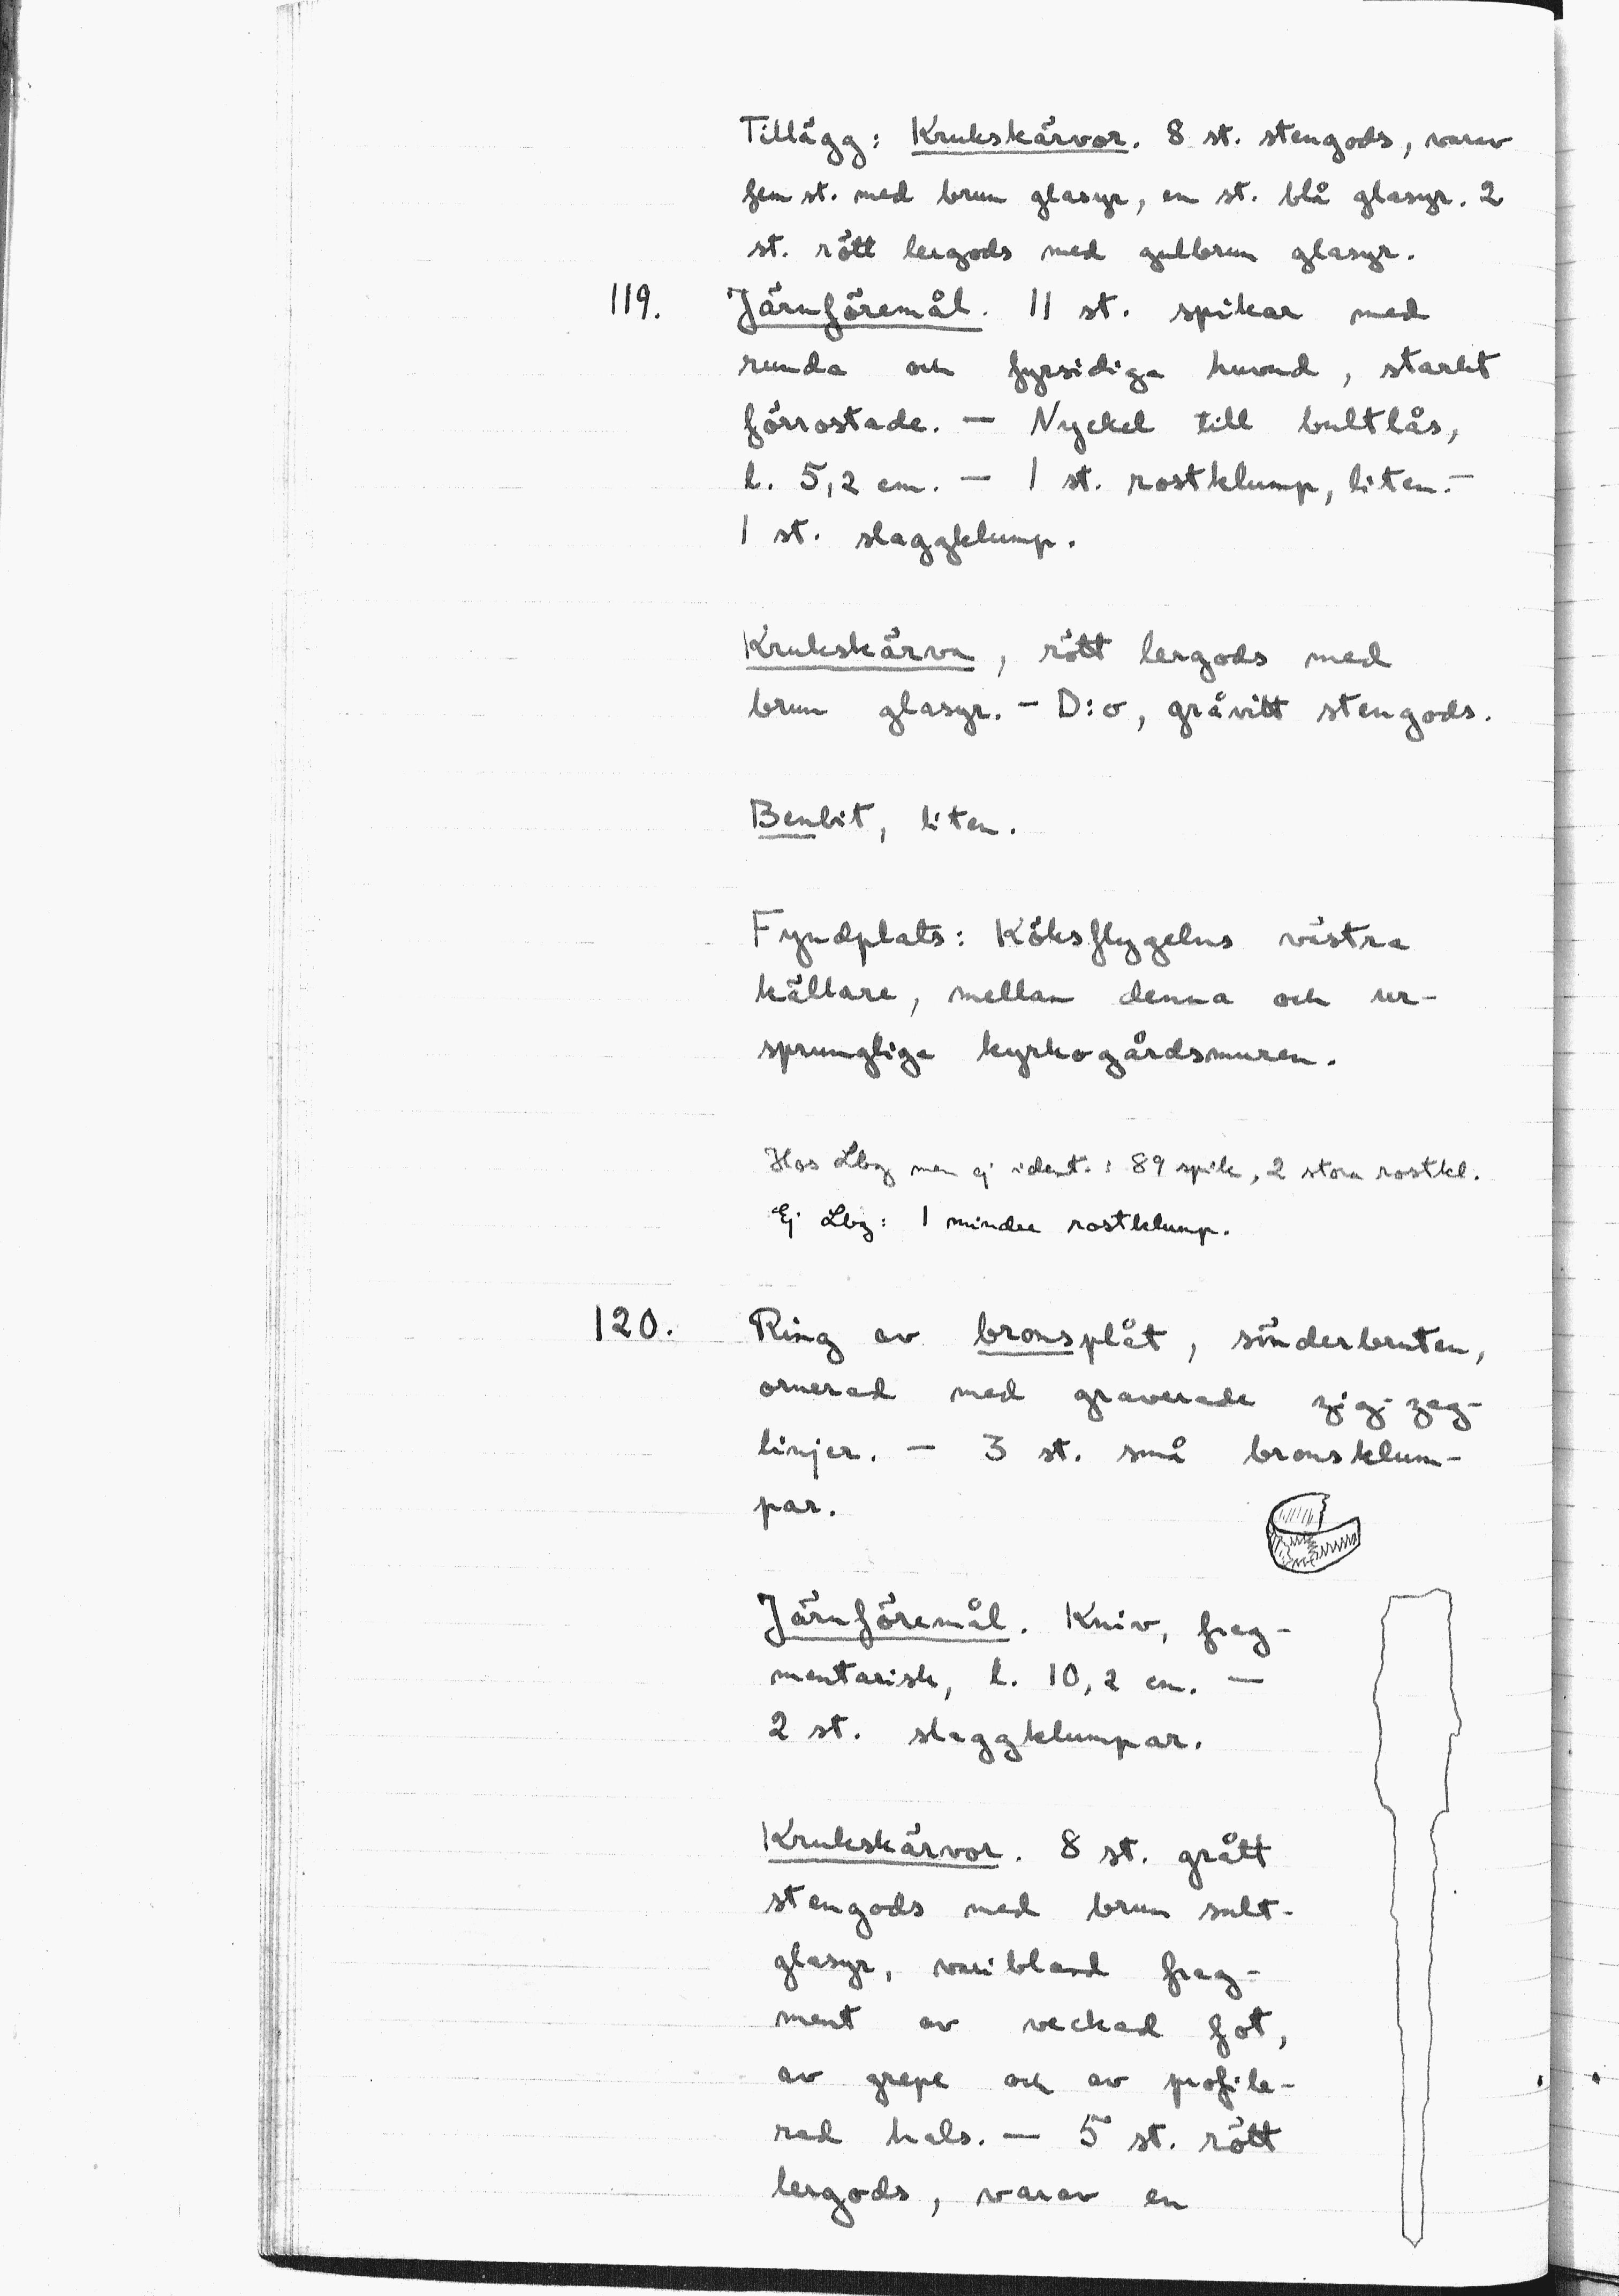 Tillägg: Krukskärvor. 8 st. stengods, varav
fem st. med brun glasyr, en st. blå glasyr. 2
st. rött lergods med gulbrun glasyr.
119. Järnföremål. 11 st. spikar med
runda och fyrsidiga huvud, starkt
förrostade. — Nyckel till bultlås,
l. 5,2 cm. — 1 st. rostklump, liten. —
1 st. slaggklump.
Krukskärva, rött lergods med
brun glasyr. — D:o, gråvitt stengods.
Benbit, liten.
Fyndplats: Köksflygelns västra
källare, mellan denna och ur-
sprungliga kyrkogårdsmuren.
Hos Lbg men ej ident.: 89 spik, 2 stora rostkl.
Ej Lbg: 1 mindre rostklump.
120. Ring av bronsplåt, sönderbruten,
ornerad med graverade zig-zag-
linjer. — 3 st. små bronsklum-
par.
Järnföremål. Kniv, frag-
mentarisk, l. 10,2 cm. —
2 st. slaggklumpar.
Krukskärvor. 8 st. grått
stengods med brun salt-
glasyr, varibland frag-
ment av veckad fot,
av grepe och av profile-
rad hals. — 5 st. rött
lergods, varav en